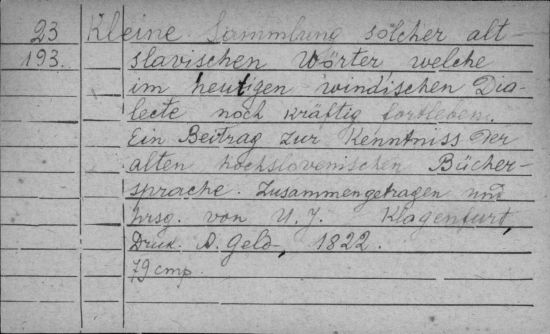 23 Kleine Sammlung solcher alt-
193. slavischen Wörter welche
im heutigen windischen Dia-
lecte noch kräftig fortleben.
Ein Beitrag zur Kenntniss der
alten hochslovenischen Bücher-
sprache. Zusammengetragen und
hrsg. von U. J. Klagenfurt,
Druk. A. Geld-, 1822.
79 cmp.